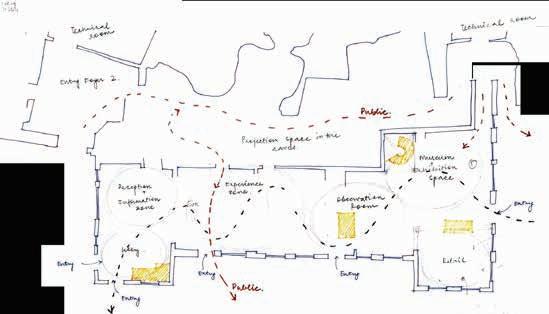 Technical
room
Technical room
Entry Foyer 2.
Public.
Projection Space in the
Museum
+
Exhibition
Space
①
Reception
+
Information
zone
Experience
zone
Observation
Room
Entry
Entry
Entry
Entry
Entry
Retail
Public.